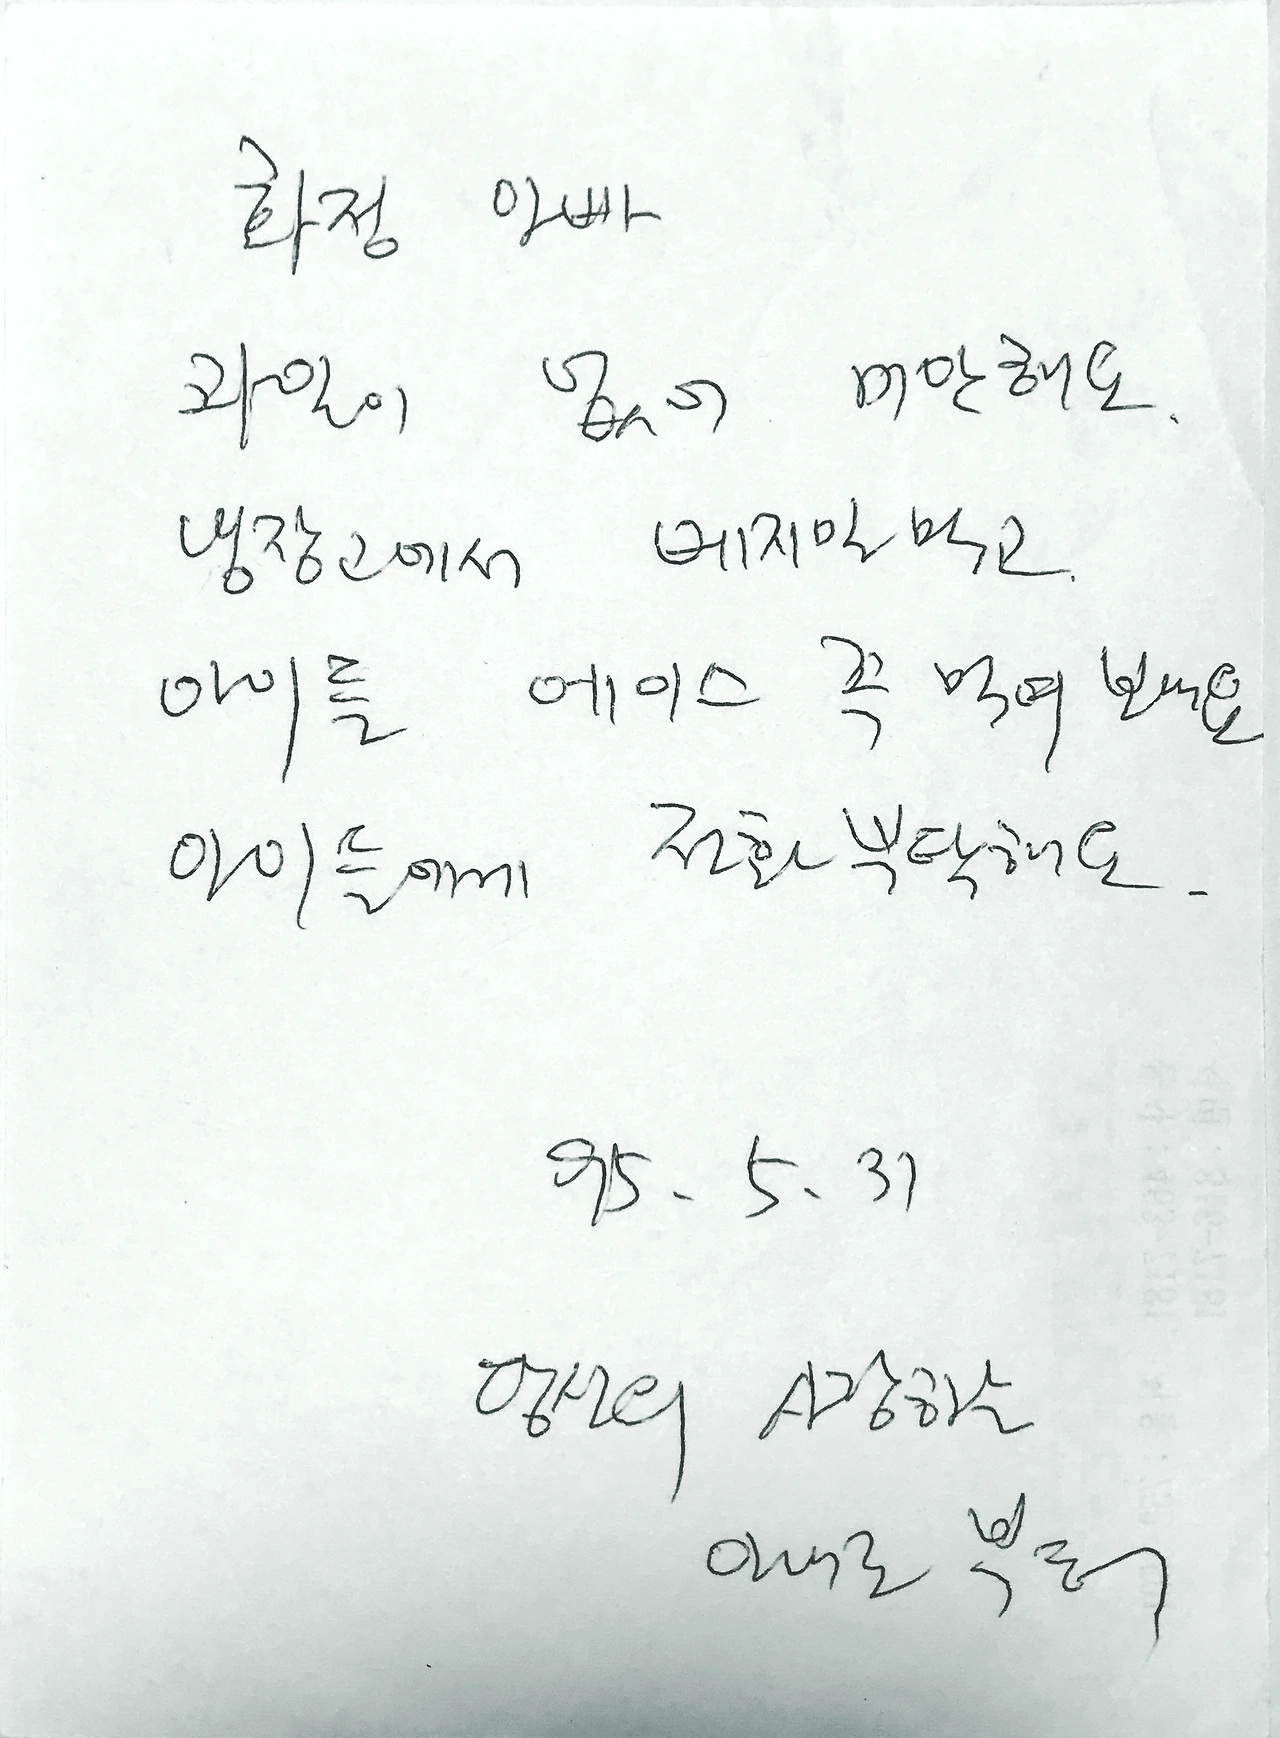 화정 아빠
과일이 없어 미안해요.
냉장고에서 베지밀 먹고.
아이들 에이스 꼭 먹여 보내요
아이들에게 전화 부탁해요.
95. 5. 31
당신의 사랑하는
아내로 부터